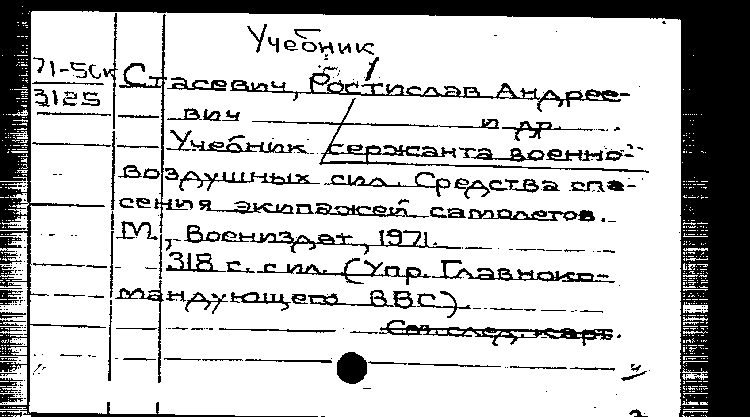 Учебник
71-5СК
3125
Стасевич, Ростислав Андрее-
вич и др.
Учебник сержанта военно-
воздушных сил. Средства спа-
сения экипажей самолетов.
М., Воениздат, 1971.
318 с. с ил. (Упр. Главноко-
мандующего ВВС).
См. след. карт.